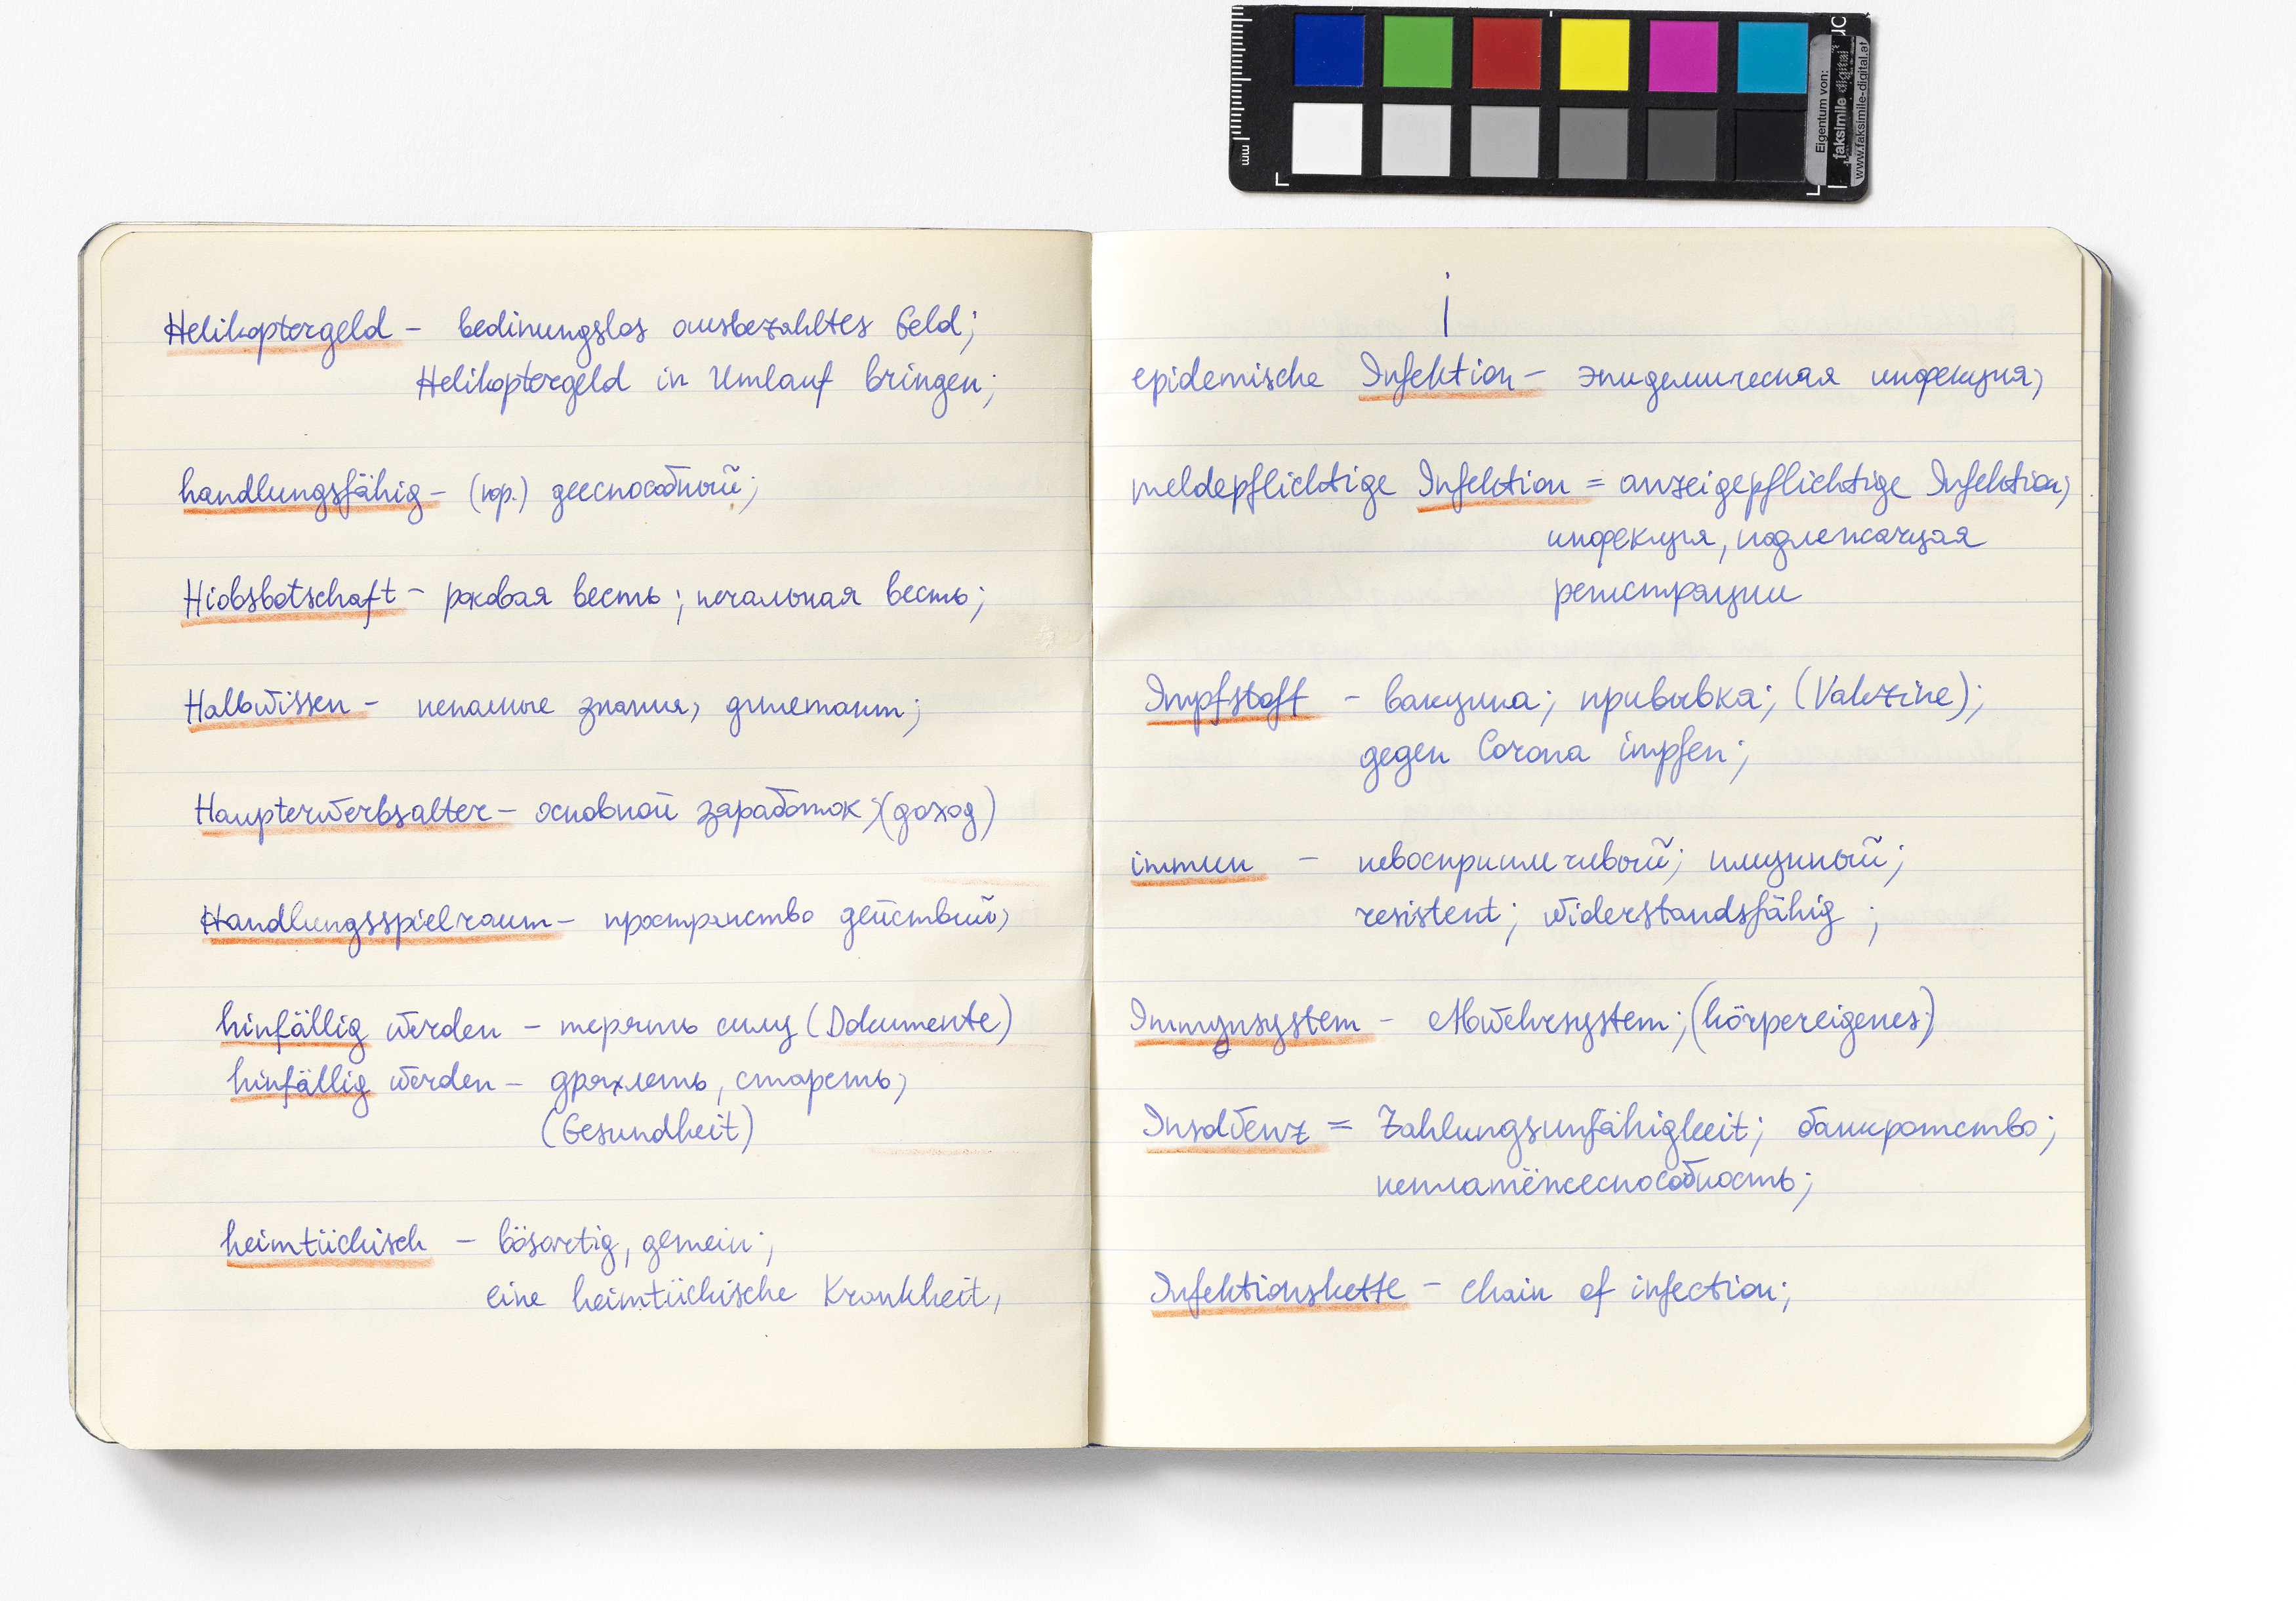 Eigentum von:
faksimile digital
www.faksimile-digital.at
mm
Helikoptergeld – bedinungslos ausbezahltes Geld;
Helikoptergeld in Umlauf bringen;
handlungsfähig – (юр.) дееспособный;
Hiobsbotschaft – роковая весть; печальная весть;
Halbwissen – неполные знания, дилетант;
Haupterwerbsalter – основной заработок; (доход)
Handlungsspielraum – пространство действий,
hinfällig werden – терять силу (Dokumente)
hinfällig werden – дряхлеть, стареть,
(Gesundheit)
heimtückisch – bösartig, gemein;
eine heimtückische Krankheit,
i
epidemische Infektion – эпидемическая инфекция,
meldepflichtige Infektion = anzeigepflichtige Infektion;
инфекция, подлежащая
регистрации
Impfstoff – вакцина; прививка; (Vakzine);
gegen Corona impfen;
immun – невосприимчивый; имунный;
resistent; widerstandsfähig ;
Immunsystem – Abwehrsystem; (körpereigenes)
Insolvenz = Zahlungsunfähigkeit; банкротство;
неплатёжеспособность;
Infektionskette – chain of infection;